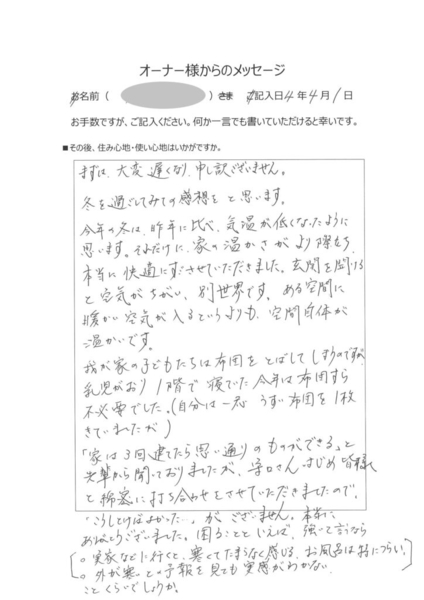 オーナー様からのメッセージ
お名前（　　　）さま　ご記入日4年4月1日
お手数ですが、ご記入ください。何か一言でも書いていただけると幸いです。
■その後、住み心地・使い心地はいかがですか。
まずは、大変遅くなり、申し訳ございません。
冬を過ごしてみての感想を と思います。
今年の冬は、昨年に比べ、気温が低くなったように
思います。それだけに、家の温かさがより際立ち、
本当に快適にすごさせていただきました。玄関を開ける
と空気がちがい、別世界です。ある空間に
暖かい空気が入るというよりも、空間自体が
温かいです。
我が家の子どもたちは布団をとばしてしまうのですが、
乳児がおり1階で寝ていた今年は布団すら
不必要でした。(自分は一応 うすい布団を1枚
きていましたが)
「家は3回建てたら思い通りのものができる」と
先輩から聞いておりましたが、さんはじめ皆様
と綿密に打ち合わせをさせていただきましたので、
「こうしとけばよかった…」がございません。本当に
ありがとうございました。困ることといえば、強いて言うなら
○実家などに行くと、寒くてたまらなく感じる。お風呂は特につらい。
○外が寒いと予報を見ても実感がわかない
ことくらいでしょうか。